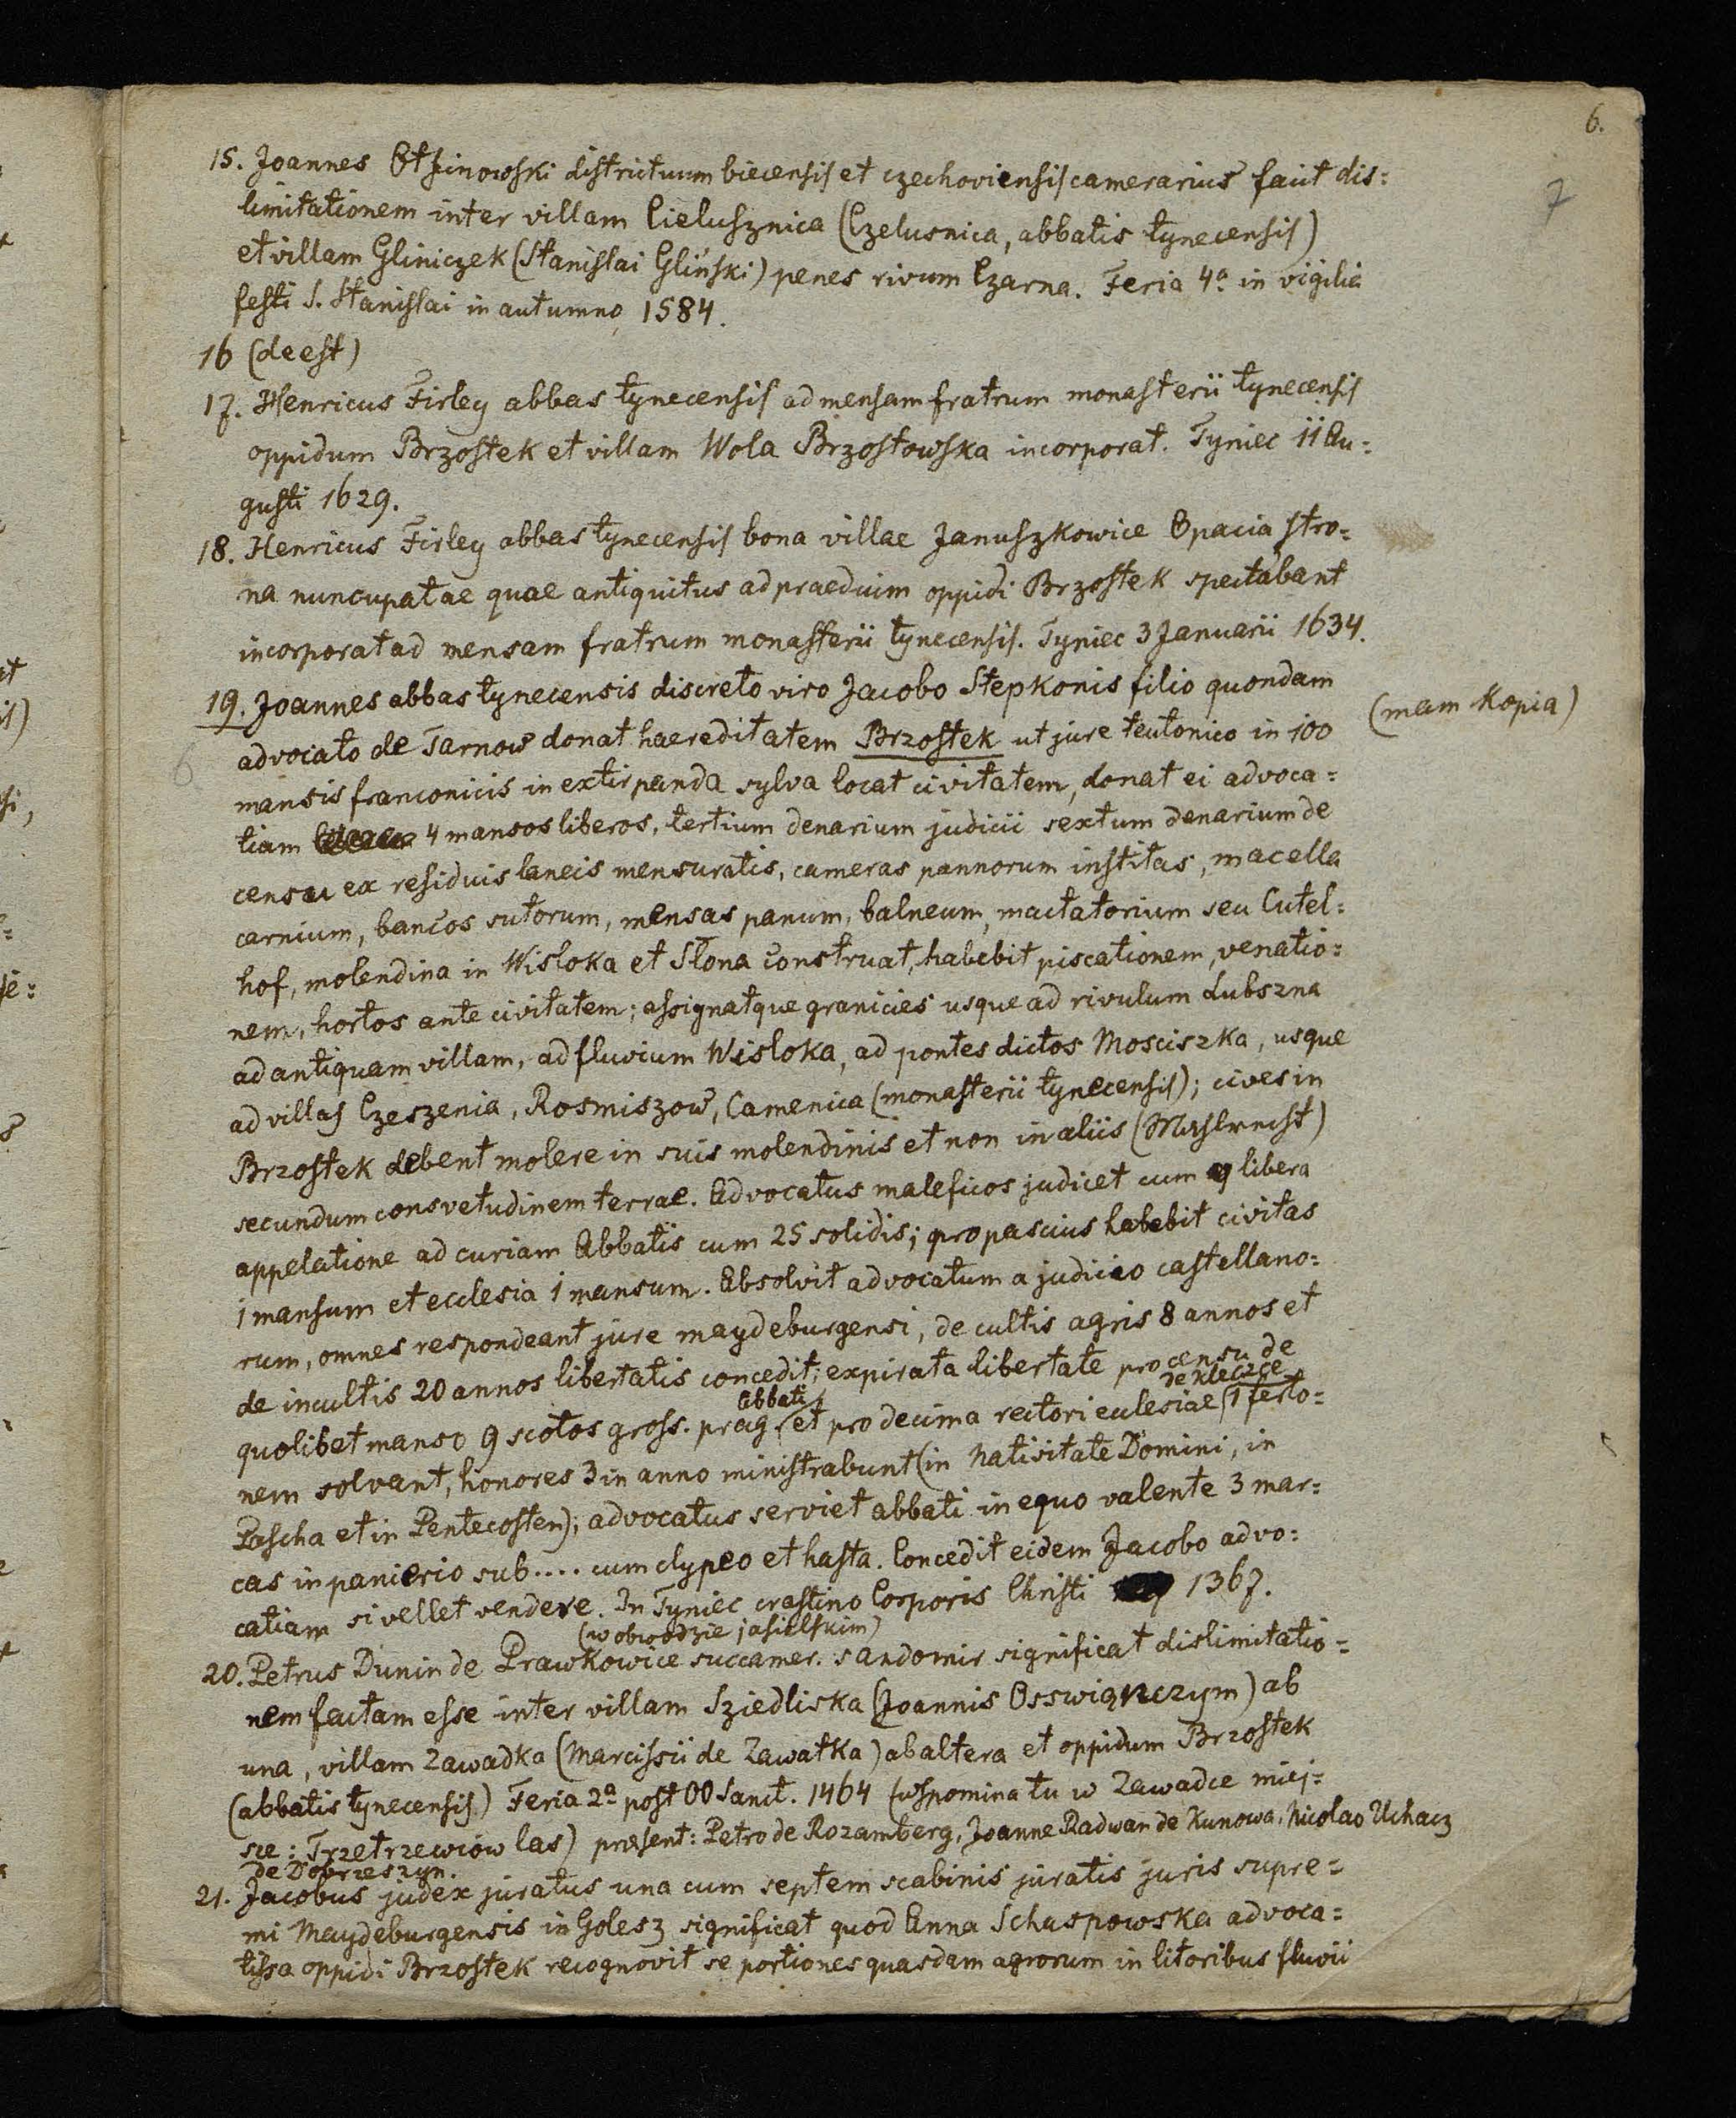 6.
7
15. Joannes Otfinowski districtuum biecensis et czechoviensis camerarius facit dis=
limitationem inter villam Cielusznica (Czelusnica, abbatis tynecensis)
et villam Gliniczek (Stanislai Gliński) penes rivum Czarna. Feria 4a in vigilia
festi S. Stanislai in autumno 1584.
16 (deest)
17. Henricus Firley abbas tynecensis ad mensam fratrum monasterii tynecensis
oppidum Brzostek et villam Wola Brzostowska incorporat. Tyniec 11 Au=
gusti 1629.
18. Henricus Firley abbas tynecensis bona villae Januszkowice Opacia stro=
na nuncupatae quae antiquitus ad praedium oppidi Brzostek spectabant
incorporat ad mensam fratrum monasterii tynecensis. Tyniec 3 Januarii 1634.
19. Joannes abbas tynecensis discreto viro Jacobo Stepkonis filio quondam
(mam kopia)
6
advocato de Tarnow donat haereditatem Brzostek ut jure teutonico in 100
mansis franconicis in extirpanda sylva locat civitatem, donat ei advoca=
tiam 4 mansos liberos, tertium denarium judicii sextum denarium de
censu ex residuis laneis mensuratis, cameras pannorum institas, macella
carnium, bancos sutorum, mensas panum, balneum, mactatorium seu Cutel=
hof, molendina in Wisloka et Słona construat, habebit piscationem, venatio=
nem, hortos ante civitatem; assignatque granicies usque ad rivulum Lubszna
ad antiquam villam, ad fluvium Wisloka, ad pontes dictos Mosciszka, usque
ad villas Czeszenia, Rosmiszow, Camenica (monasterii tynecensis); cives in
Brzostek debent molere in suis molendinis et non in aliis
secundum consvetudinem terrae. Advocatus maleficos judicet cum libera
appelatione ad curiam Abbatis cum 25 solidis; pro pascuis habebit civitas
1 mansum et ecclesia 1 mansum. Absolvit advocatum a judicio castellano=
rum, omnes respondeant jure maydeburgensi, de cultis agris 8 annos et
de incultis 20 annos libertatis concedit; expirata libertate pro censu de
abbati de kleczce
quolibet manso 9 scotos gross. prag. et pro decima rectori eclesiae 1 ferto=
nem solvant, honores 3 in anno ministrabunt (in Nativitate Domini, in
Pascha et in Pentecosten); advocatus serviet abbati in equo valente 3 mar=
cas in panicrio sub.... cum clypeo et hasta. Concedit eidem Jacobo advo=
catiam si vellet vendere. In Tyniec crastino Corporis Christi 1367.
(w obwodzie jasielskim)
20. Petrus Dunin de Prawkowice succamer. sandomir significat dislimitatio=
nem factam esse inter villam Sziedliska (Joannis Osswięnczym) ab
una, villam Zawadka (Marcissii de Zawatka) ab altera et oppidum Brzostek
(abbatis tynecensis.) Feria 2a post OO Sanct. 1464 (wspomina tu w Zawadce miej=
sce: Trzetrzewiow las) praesent: Petro de Rozamberg, Joanne Radwan de Kunowa, Nicolao Uchacz
de Dobrzeszyn.
21. Jacobus judex juratus una cum septem scabinis juratis juris supre=
mi Maydeburgensis in Golesz significat quod Anna Schaspowska advoca=
tissa oppidi Brzostek recognovit se portiones quasdam agrorum in litoribus fluvii